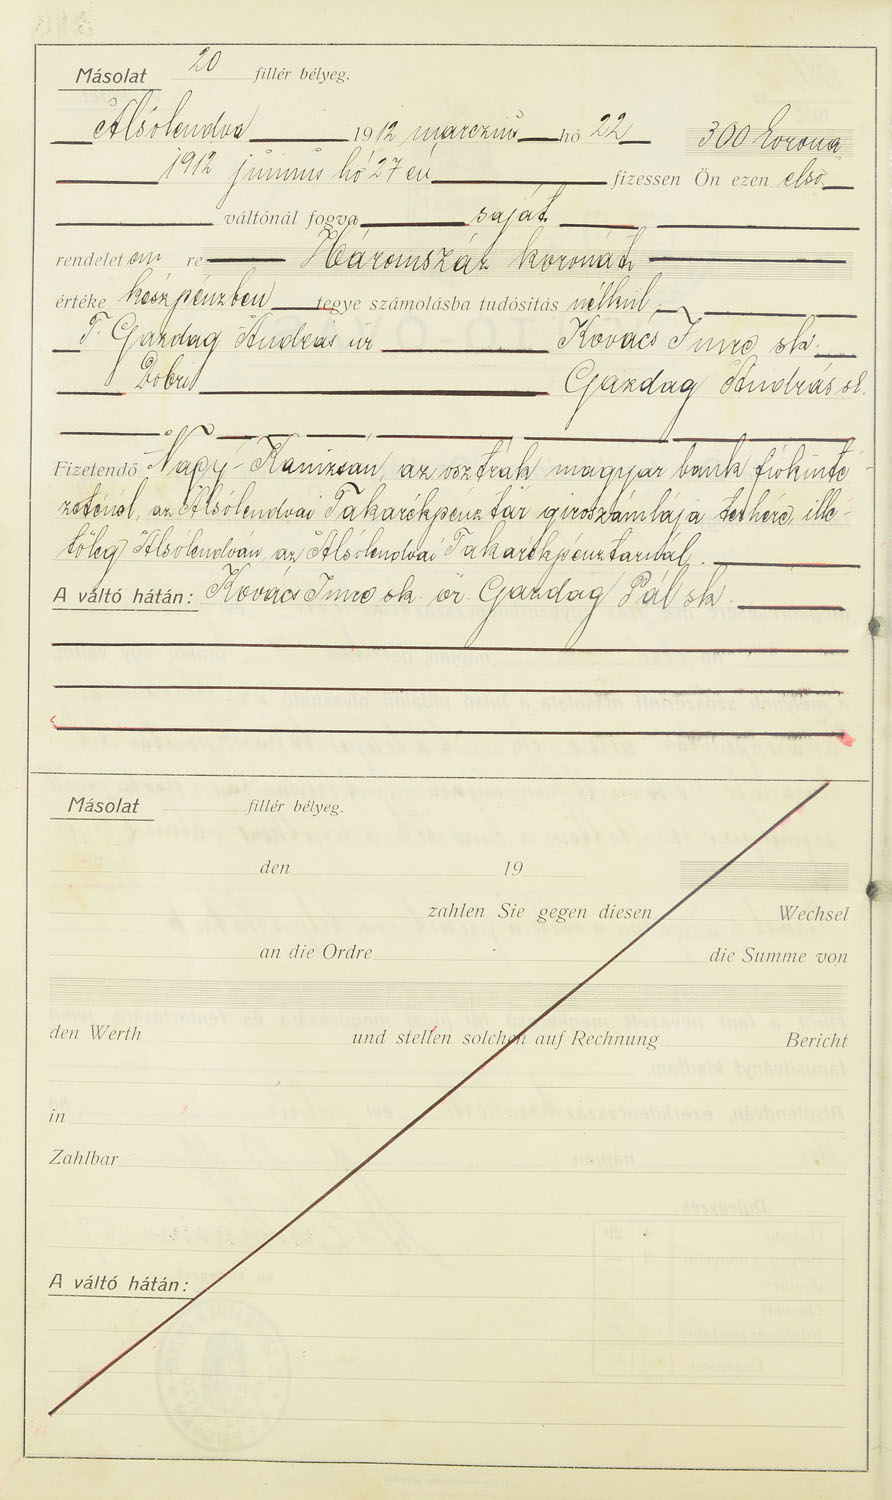 Másolat 20 fillér bélyeg.
Alsólendva 1912 marczius hó 22 300 korona
1912 junius hó 27 én fizessen Ön ezen első
váltónál fogva saját
rendelet em re Háromszáz koronát
értéke készpénzben tegye számolásba tudósitás nélkül.
T. Gazdag András úr Kovács Imre sk.
Dobri Gazdag András sk.
Fizetendő Nagy-Kanizsán, az osztrák magyar bank fiókinté-
zeténél, az Alsólendvai Takarékpénztár giroszámlája terhére, ille-
tőleg Alsólendván az Alsólendvai Takarékpénztárnál.
A váltó hátán: Kovács Imre sk. ör. Gazdag Pál sk.
Másolat fillér bélyeg.
den 19
zahlen Sie gegen diesen Wechsel
an die Ordre die Summe von
den Werth und stellen solchen auf Rechnung Bericht
in
Zahlbar
A váltó hátán: